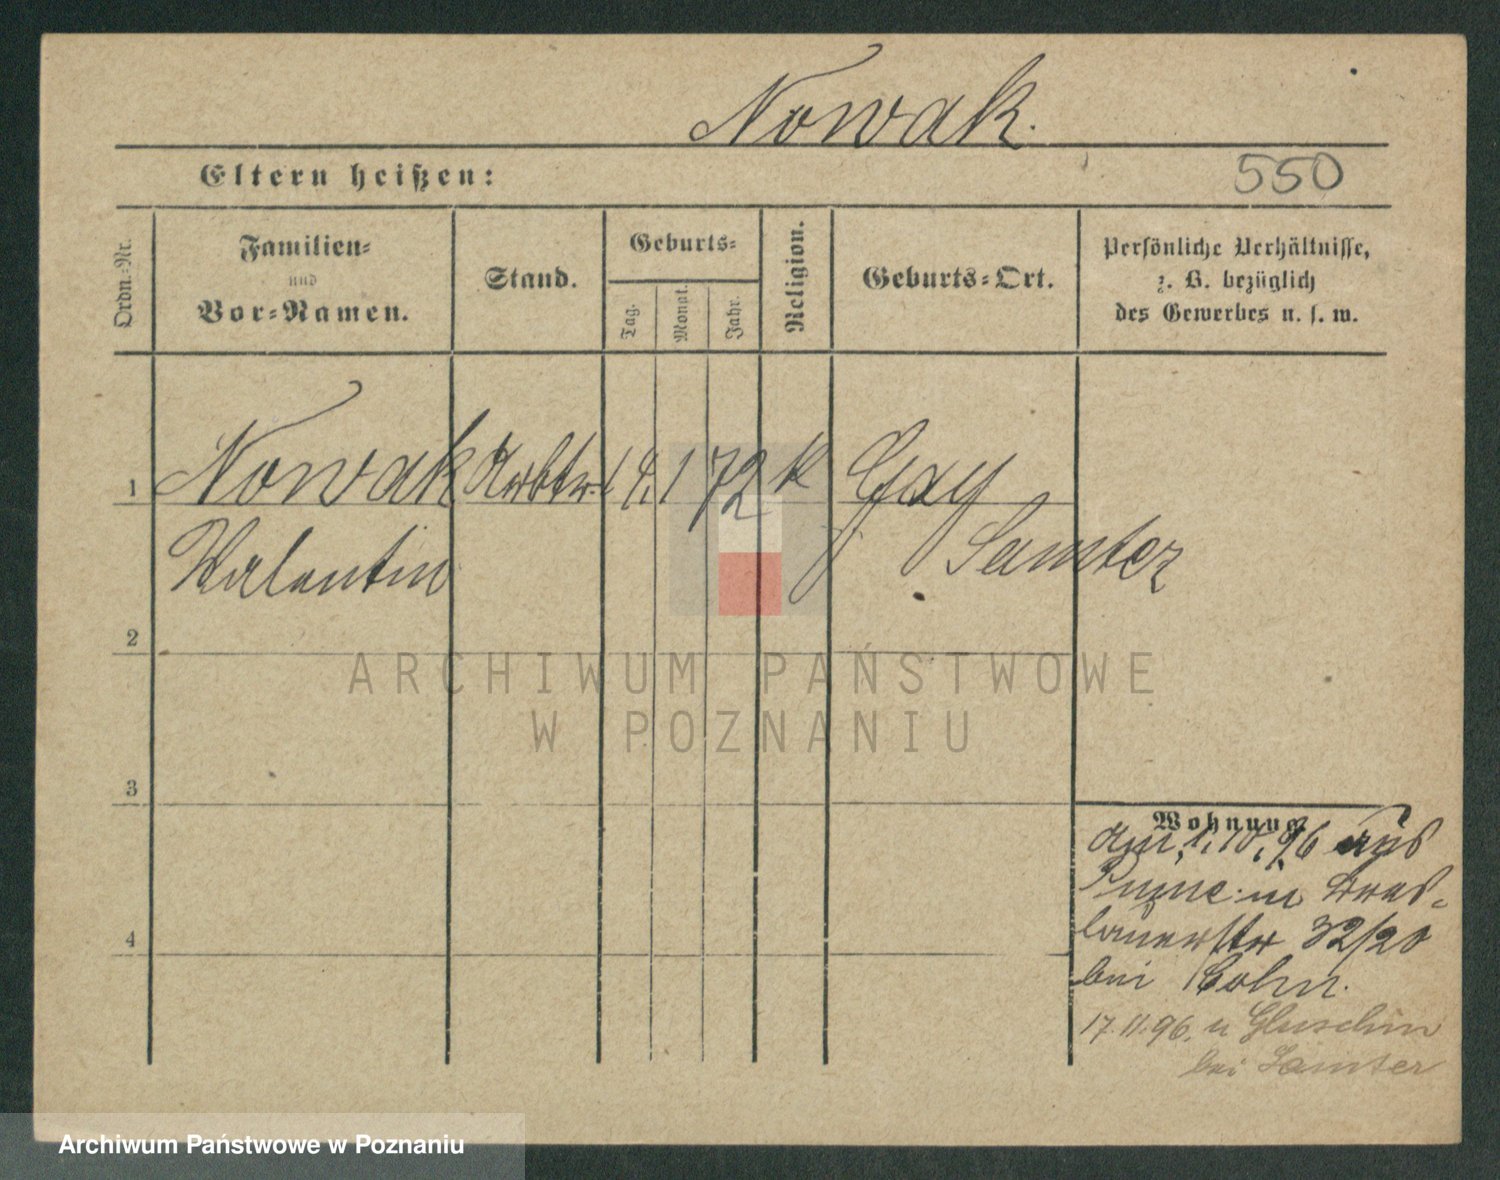 Nowak.
Eltern heißen:
550
Ordn.=Nr.
Familien=
und
Vor=Namen.
Stand.
Geburts=
Tag.
Monat.
Jahr.
Religion.
Geburts=Ort.
Persönliche Verhältnisse,
z. B. bezüglich
des Gewerbes u. s. w.
1 Nowak Arbtr. 14. 1 72 k Gay
Valentin Samter
2
ARCHIWUM PAŃSTWOWE
W POZNANIU
3
Wohnung
am 1.10.96 aus
Pinne in Bres-
lauerstr 32/20
bei Cohn.
4
17.11.96. n Gluschin
bei Samter
Archiwum Państwowe w Poznaniu